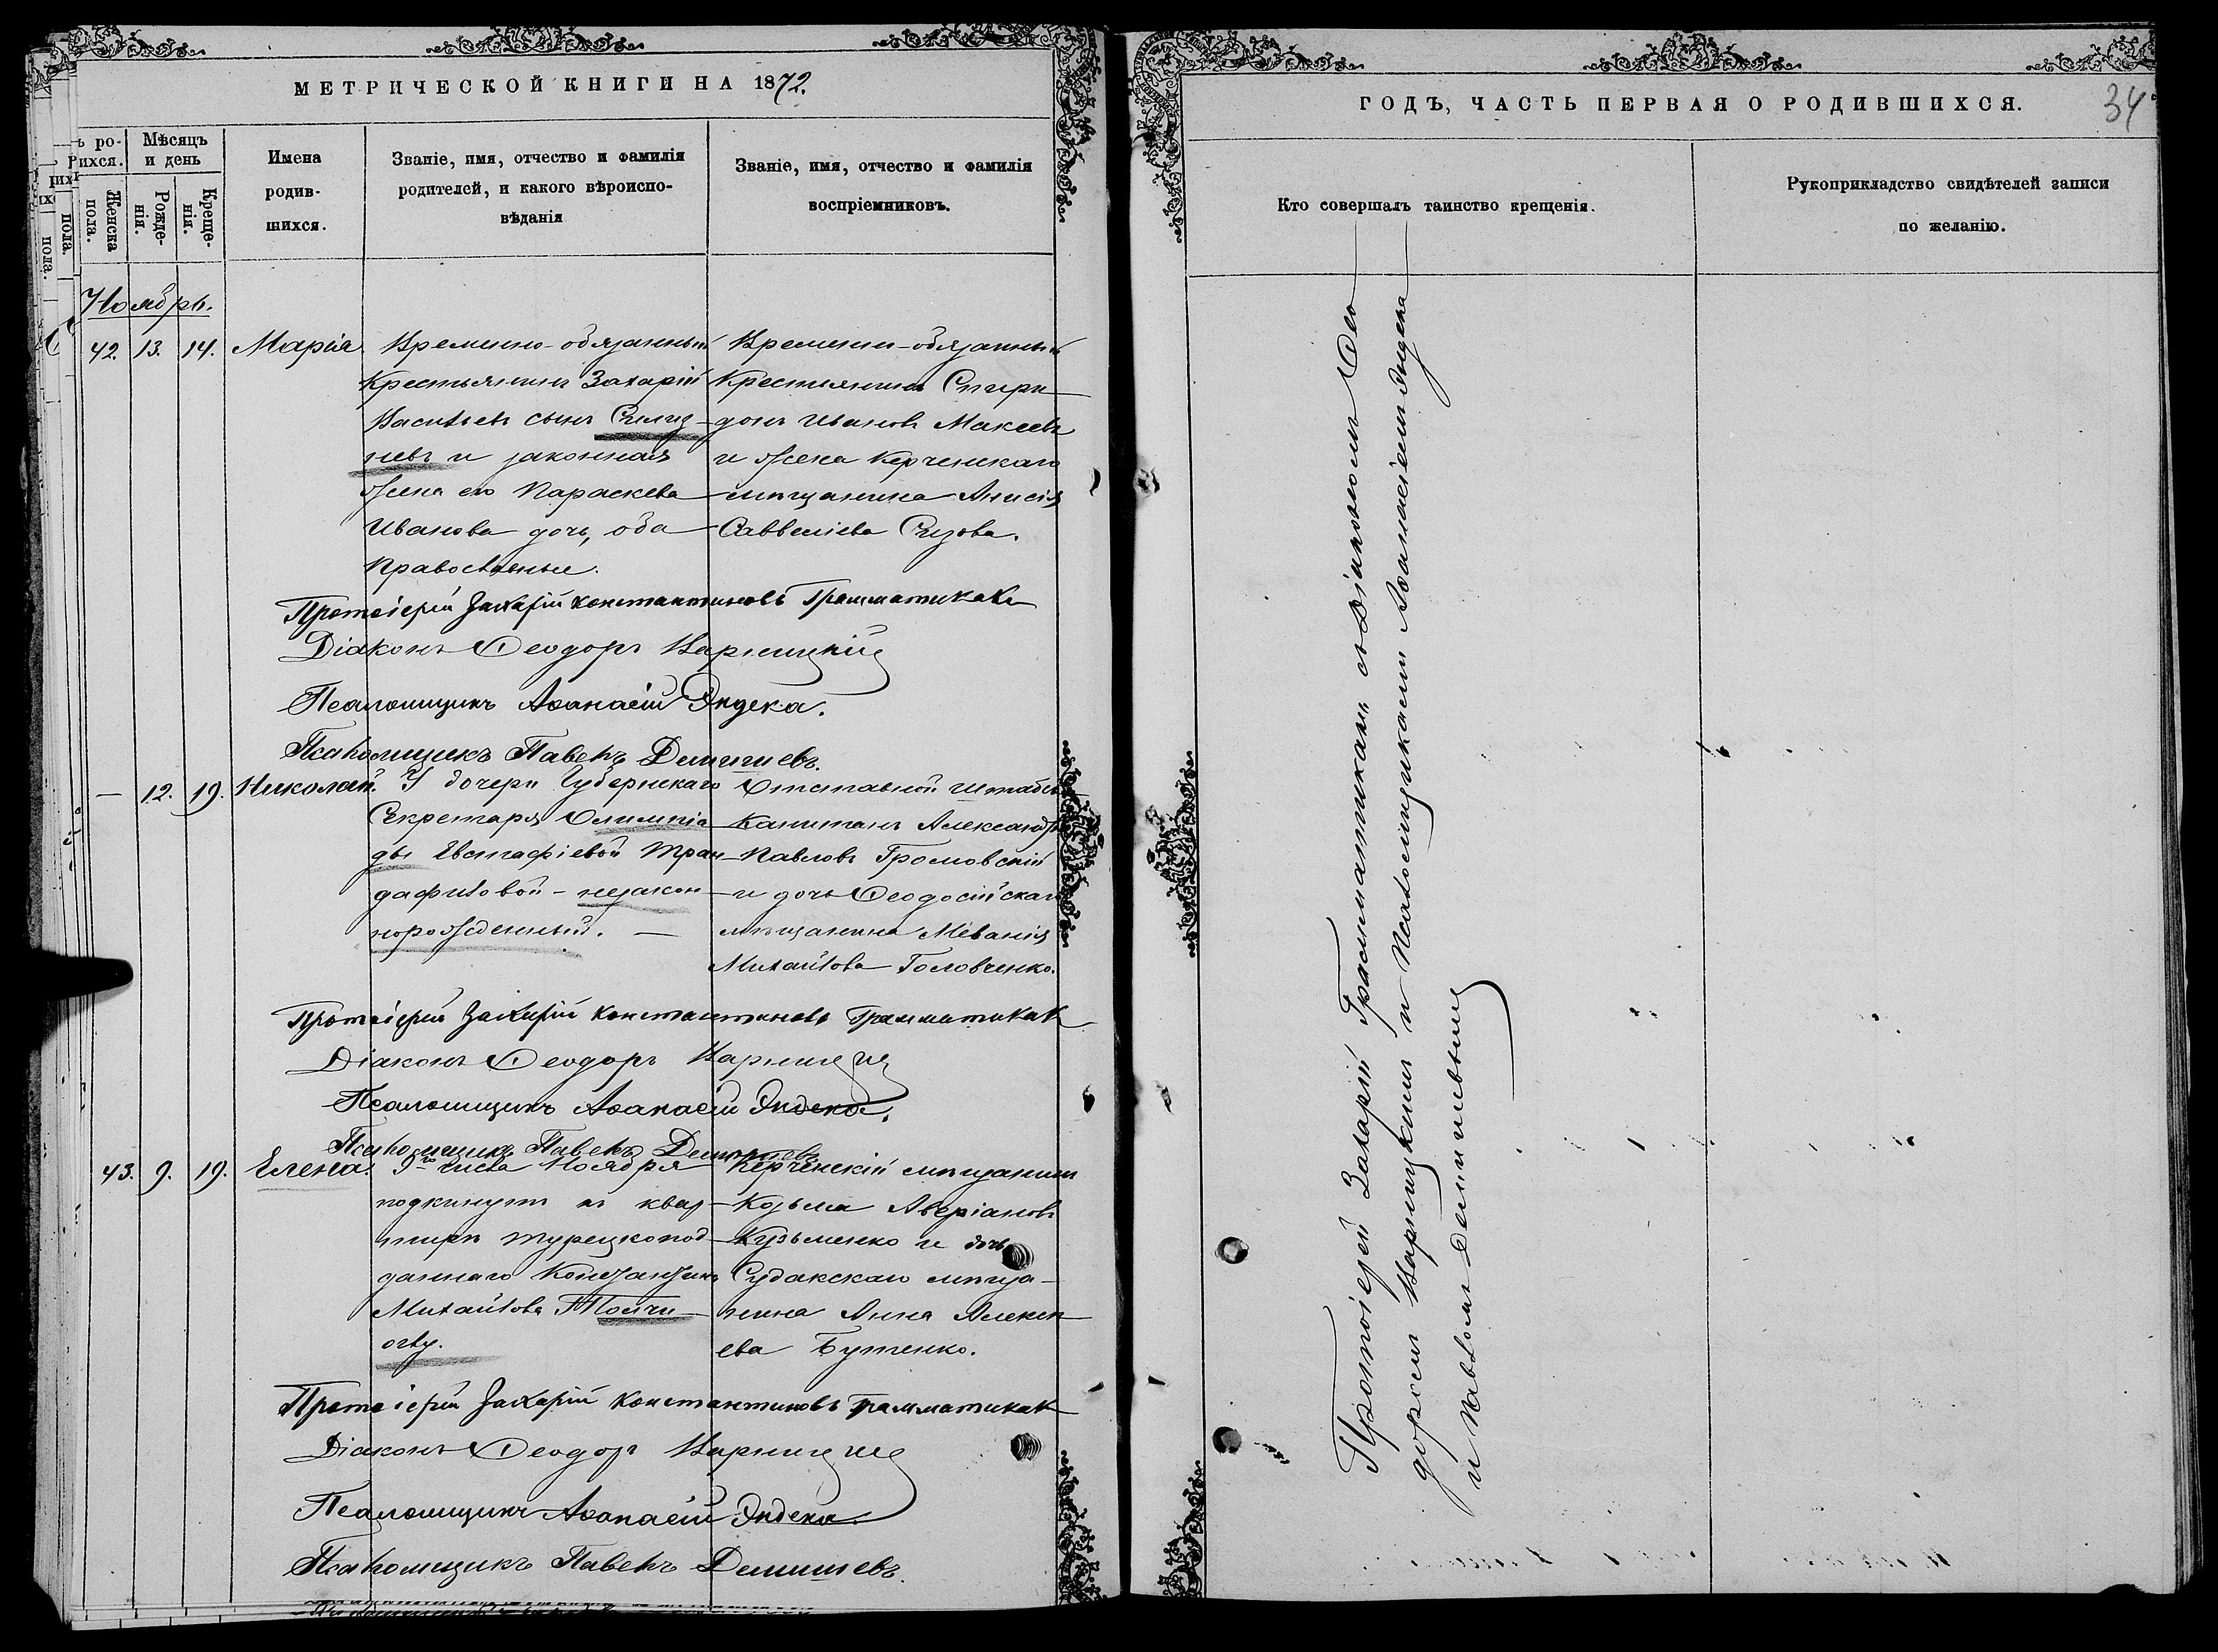 МЕТРИЧЕСКОЙ КНИГИ НА 1872.
ъ ро-
рихся.
Мѣсяцъ
и день
Женска
пола.
Рожде-
нія.
Креще-
нія.
Имена
родив-
шихся.
Званіе, имя, отчество и фамилія
родителей, и какого вѣроиспо-
вѣданія
Званіе, имя, отчество и фамилія
воспріемниковъ.
пола.
пола.
Ноябрь.
42. 13. 14. Марія
Временно-обязанный
Крестьянинъ Захарій
Васильевъ сынъ
и законная
жена его Параскева
Иванова дочь, оба
православные.
Временно-обязанный
Крестьянинъ Спири-
донъ Ивановъ Макеевъ
и жена Керченскаго
мѣщанина Анисія
Савельева Сизова.
Протоіерей Захарій Константиновъ Грамматикакі
Діаконъ Ѳеодоръ
Псаломщикъ Аѳанасій Яндека.
Псаломщикъ Павелъ
— 12. 19. Николай.
У дочери Губернскаго
Секретаря Олимпіа-
ды Евстафіевой Тран-
дафиловой - незакон-
норожденный. —
Отставной штабсъ-
Капитанъ Александръ
Павловъ Громовскій
и дочь Ѳеодосійскаго
мѣщанина Меланія
Михайлова Головченко.
Протоіерей Захарій Константиновъ Грамматикакі
Діаконъ Ѳеодоръ
Псаломщикъ Аѳанасій Яндека.
Псаломщикъ Павелъ
43. 9. 19. Елена.
9го числа Ноября
подкинута къ квар-
тирѣ турецкопод-
даннаго Константина
Михайлова
Керченскій мѣщанинъ
Козьма Аверіановъ
Кузьменко и дочь
Судакскаго мѣща-
нина Анна Алексѣ-
ева Бутенко.
Протоіерей Захарій Константиновъ Грамматикакі
Діаконъ Ѳеодоръ
Псаломщикъ Аѳанасій Яндека.
Псаломщикъ Павелъ
ГОДЪ, ЧАСТЬ ПЕРВАЯ О РОДИВШИХСЯ.
34
Кто совершалъ таинство крещенія.
Рукоприкладство свидѣтелей записи
по желанію.
Протоіерей Захарій Грамматикаки, съ Діакономъ Ѳео-
доромъ и Псаломщиками Аѳанасіемъ Яндека
и Павломъ